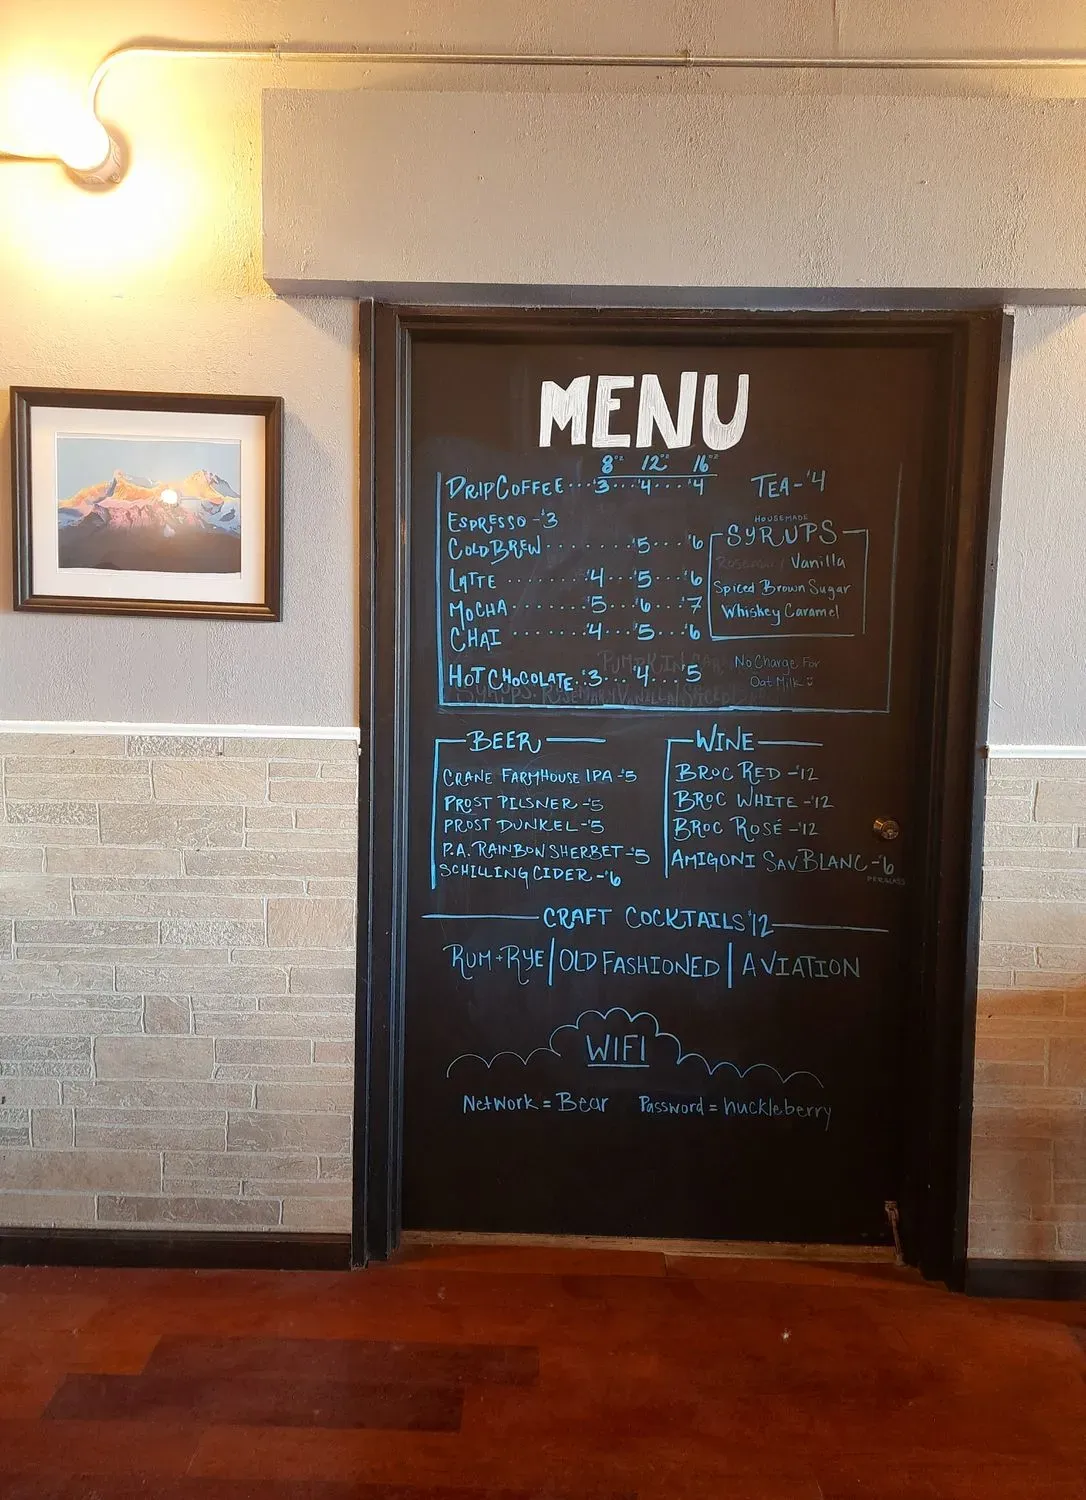 MENU
8oz 12oz 16oz
DRIP COFFEE···$3···$4···$4
TEA-$4
ESPRESSO-$3
COLD BREW········$5···$6
LATTE·······$4···$5···$6
MOCHA·······$5···$6···$7
CHAI·······$4···$5···$6
HOT CHOCOLATE··$3···$4···$5
HOUSEMADE
SYRUPS
Rosemary / Vanilla
Spiced Brown Sugar
Whiskey Caramel
No Charge For
Oat Milk
PUMPKIN
SYRUPS: ROSEMARY VANILLA SPICED
BEER
CRANE FARMHOUSE IPA-$5
PROST PILSNER-$5
PROST DUNKEL-$5
P.A. RAINBOW SHERBET-$5
SCHILLING CIDER-$6
WINE
BROC RED-$12
BROC WHITE-$12
BROC ROSÉ-$12
AMIGONI SAV BLANC-$6
PER GLASS
CRAFT COCKTAILS $12
RUM+RYE | OLD FASHIONED | AVIATION
WIFI
Network = Bear Password = huckleberry